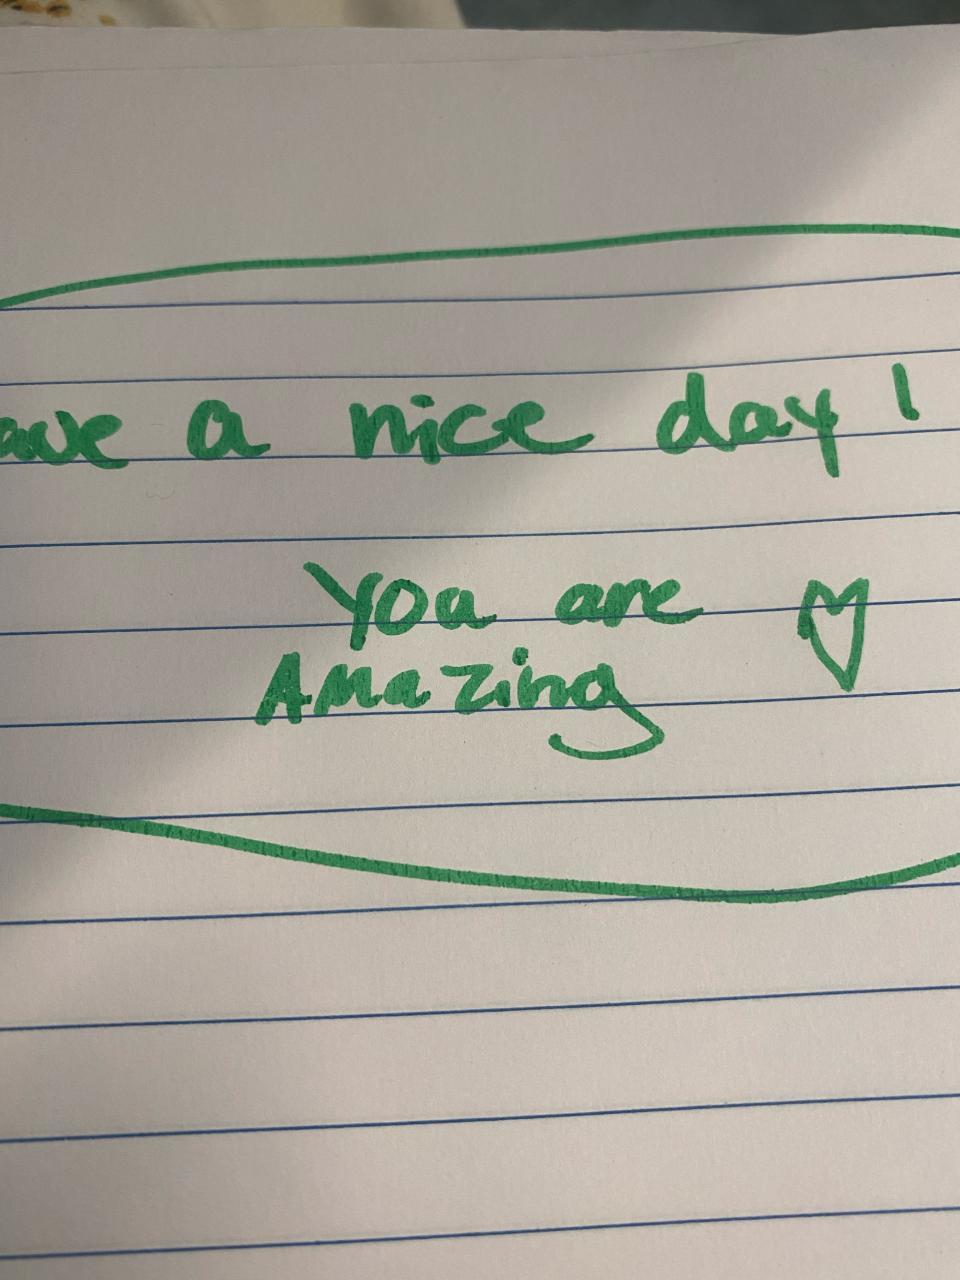 ave a nice day!
You are
Amazing